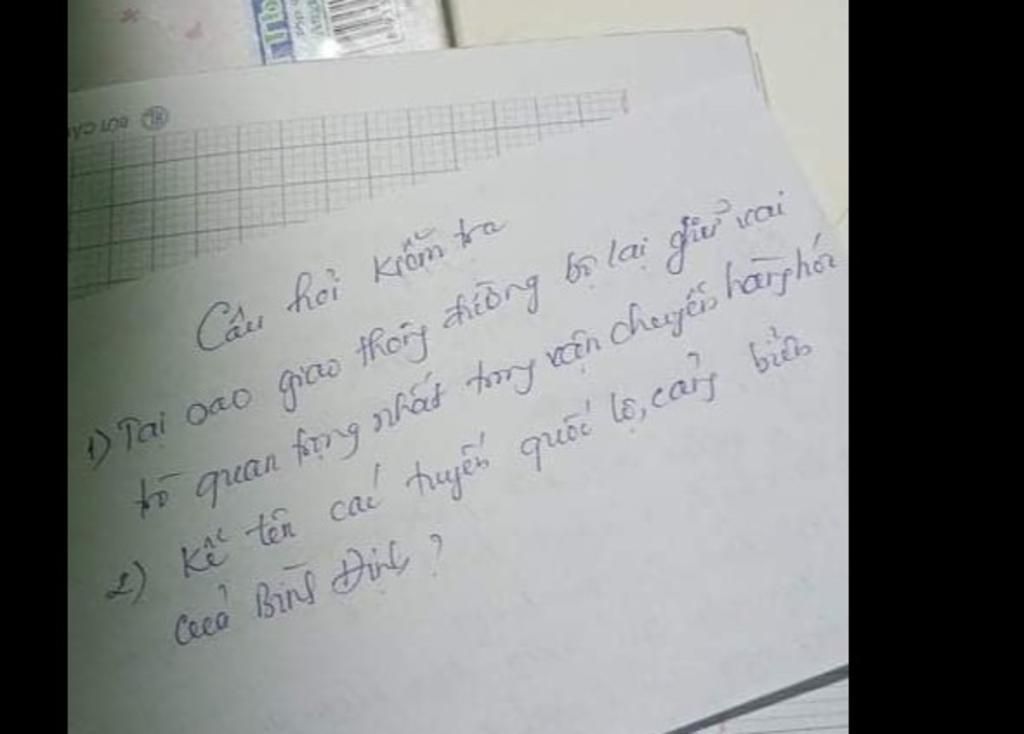 Câu hỏi kiểm tra
1) Tại sao giao thông đường bộ lại giữ vai
trò quan trọng nhất trong vận chuyển hàng hóa
2) Kể tên các tuyến quốc lộ, cảng biển
của Bình Định?